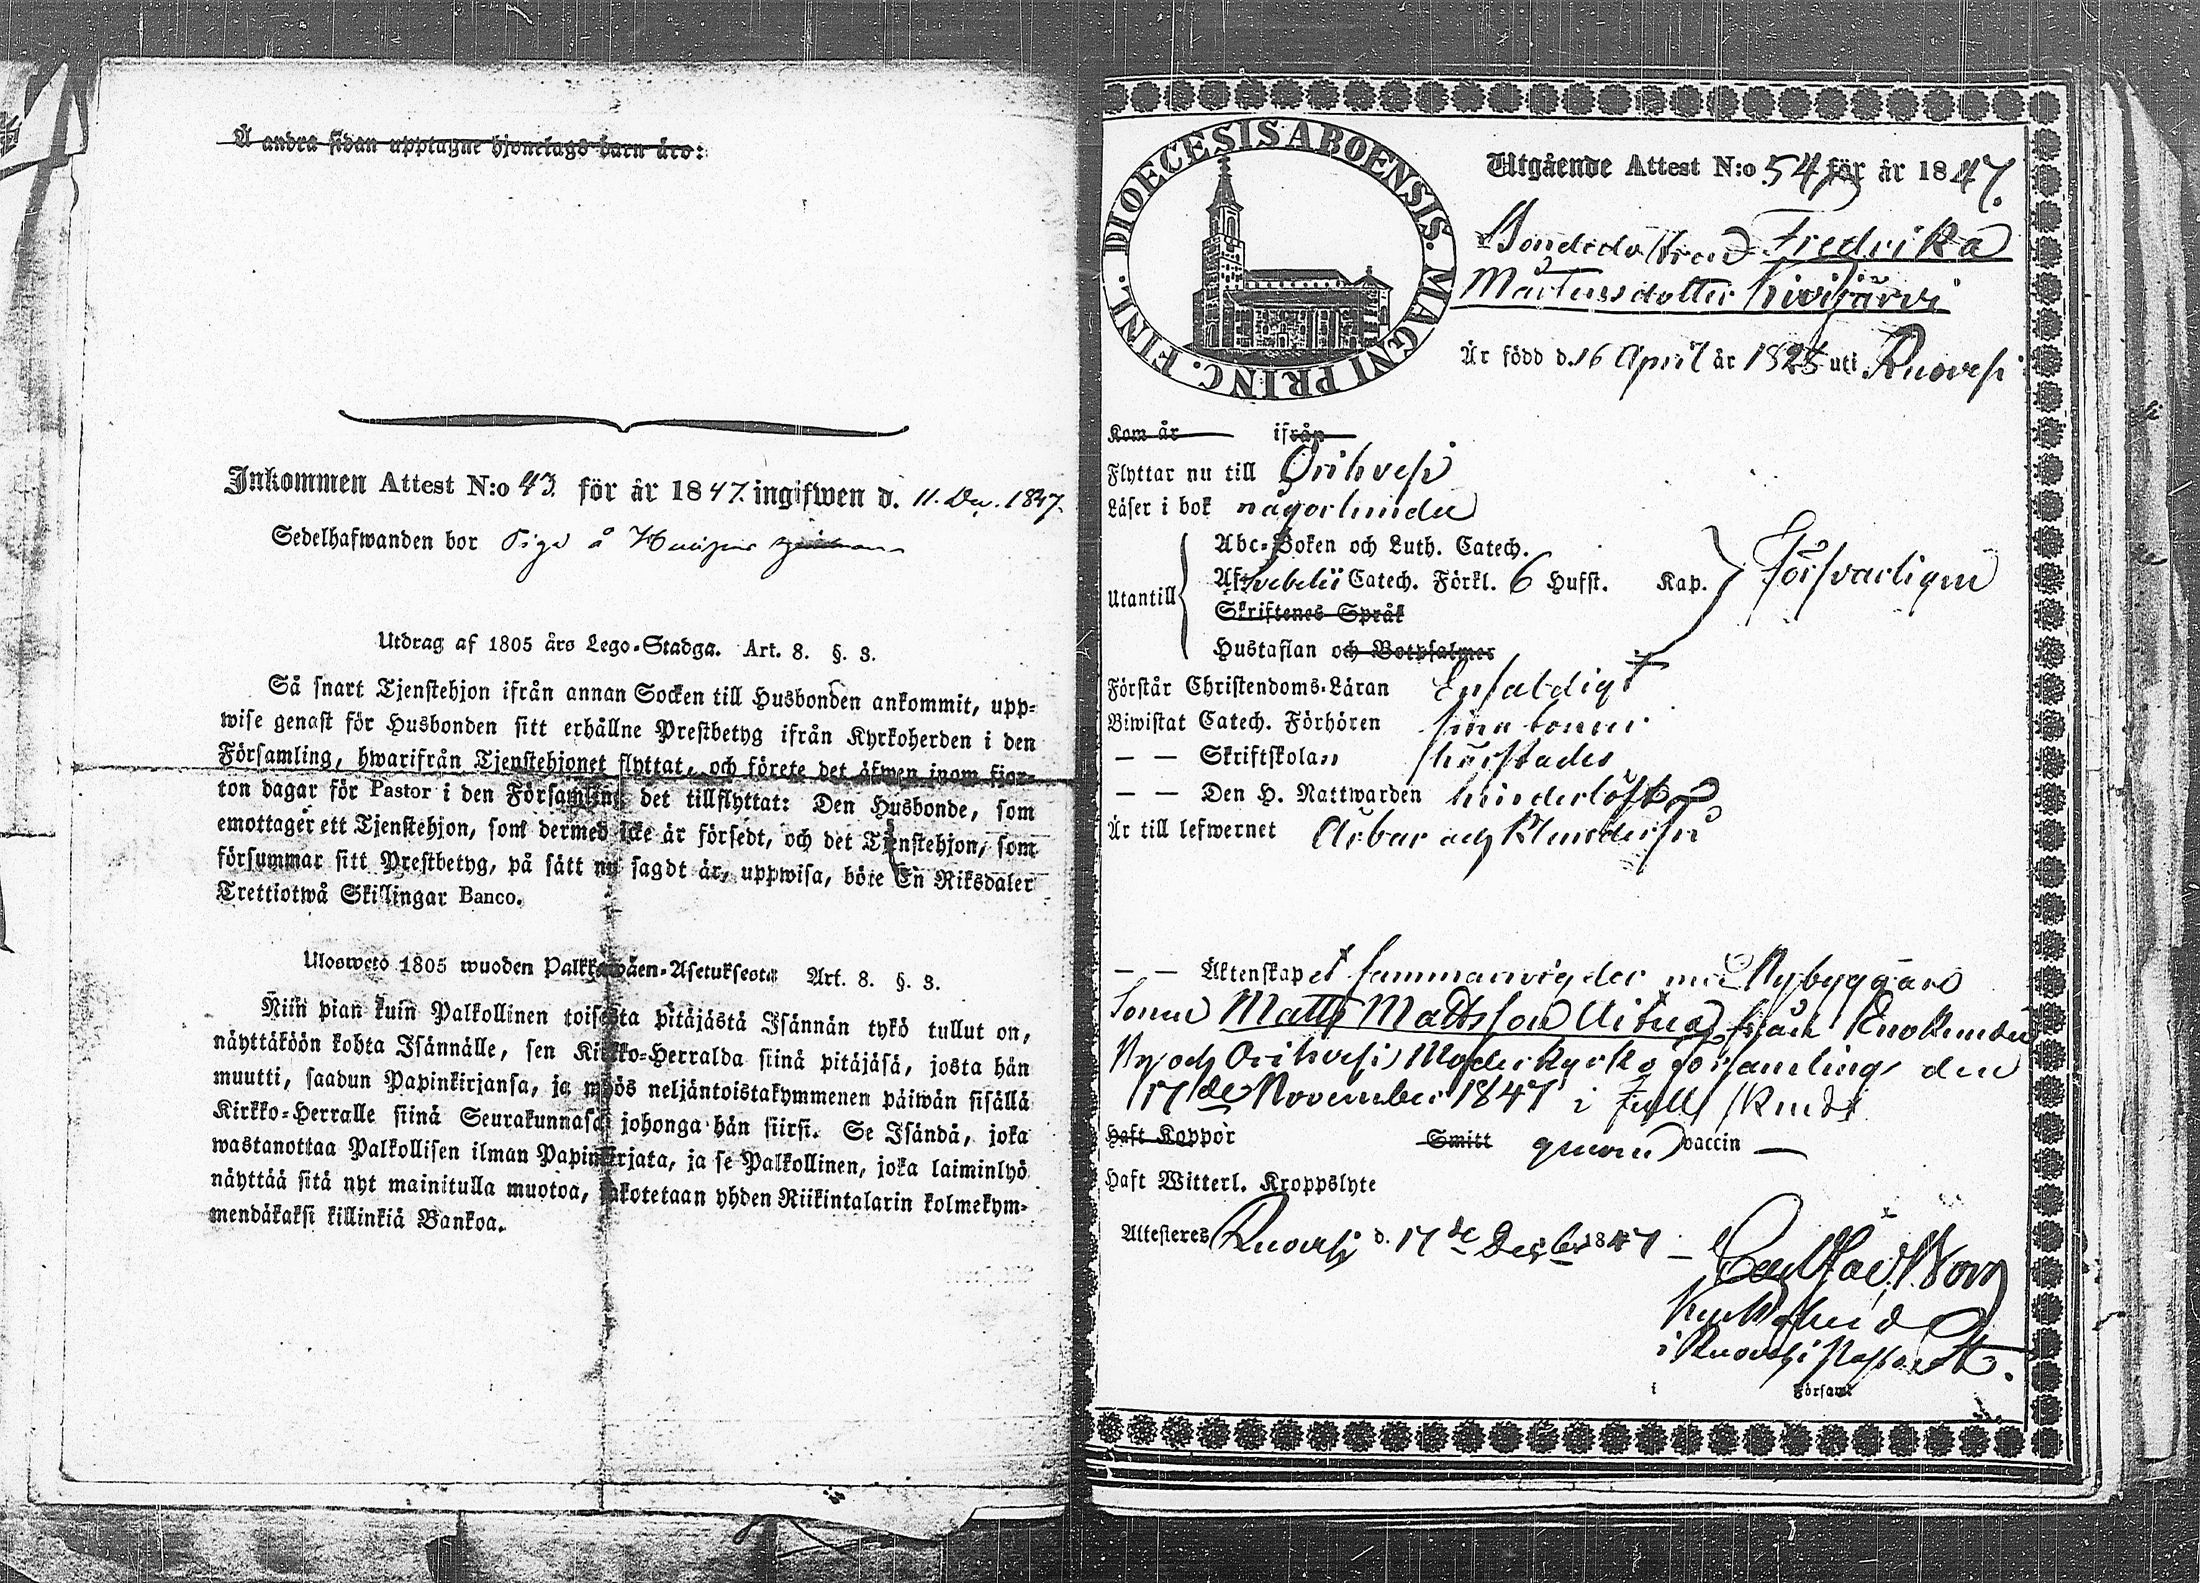 Å andra sidan upptagne hjonelags barn äro:
Inkommen Attest N:o 43. för år 1847. ingifwen d. 11. Dec. 1847.
Sedelhafwanden bor Piga å
Utdrag af 1805 års Lego-Stadga. Art. 8. §. 3.
Så snart Tjenstehjon ifrån annan Socken till Husbonden ankommit, upp-
wise genast för Husbonden sitt erhållne Prestbetyg ifrån Kyrkoherden i den
Församling, hwarifrån Tjenstehjonet flyttat, och förete det äfwen inom fjor-
ton dagar för Pastor i den Församling det tillflyttat: Den Husbonde, som
emottager ett Tjenstehjon, som dermed icke är försedt, och det Tjenstehjon, som
försummar sitt Prestbetyg, på sätt nu sagdt är, uppwisa, böte En Riksdaler
Trettiotwå Skillingar Banco.
Uloswetö 1805 wuoden Palkkawäen-Asetuksesta Art. 8. §. 3.
Niin pian kuin Palkollinen toisesta pitäjästä Isännän tykö tullut on,
näyttäköön kohta Isännälle, sen Kirkko-Herralda siinä pitäjäsä, josta hän
muutti, saadun Papinkirjansa, ja myös neljäntoistakymmenen päiwän sisällä
Kirkko-Herralle siinä Seurakunnasa johonga hän siirsi. Se Isändä, joka
wastanottaa Palkollisen ilman Papinkirjata, ja se Palkollinen, joka laiminlyö
näyttää sitä nyt mainitulla muotoa, sakotetaan yhden Riikintalarin kolmekym-
mendäkaksi killinkiä Bankoa.
DIOECESIS ABOENSIS. MAGNI PRINC. FINL.
Utgående Attest N:o 54 för år 1847.
Bondedottren Fredrika
Mårtensdotter Kivijärvi
Är född d. 16 April år 1825 uti Ruovesi
Kom år ifrån
Flyttar nu till Orihvesi
Läser i bok någorlunda
Utantill
Abc-Boken och Luth. Catech.
Af Svebelii Catech. Förkl. 6 Hufst. Kap.
Skriftenes Språk
Hustaflan och Botpsalmer
Försvarligen
Förstår Christendoms-Läran Enfaldigt
Biwistat Catech. Förhören
— — Skriftskolan
— — Den H. Nattwarden
Är till lefwernet Ärbar och
— — Äktenskapet sammanvigder med Nybyggare
Sonen Matts Mattsson från
By och Orihvesi Moderkyrko församling den
17de November 1847 i
Haft Koppor Smitt genom vaccin —
Haft Witterl. Kroppslyte
Attesteres Ruovesi d. 17de Decbr 1847 —
Kyrkoherde
i Ruovesi Pastorat.
i Församl